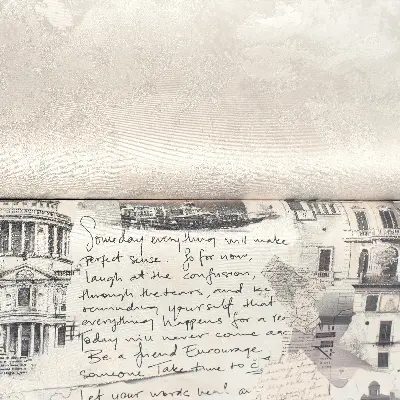 Someday everything will make
perfect sense. So for now,
laugh at the confusion,
through the tears, and
reminding yourself that
everything happens for a
Today will never come
Be a friend Encourage
someone Take time to
Let your words heal